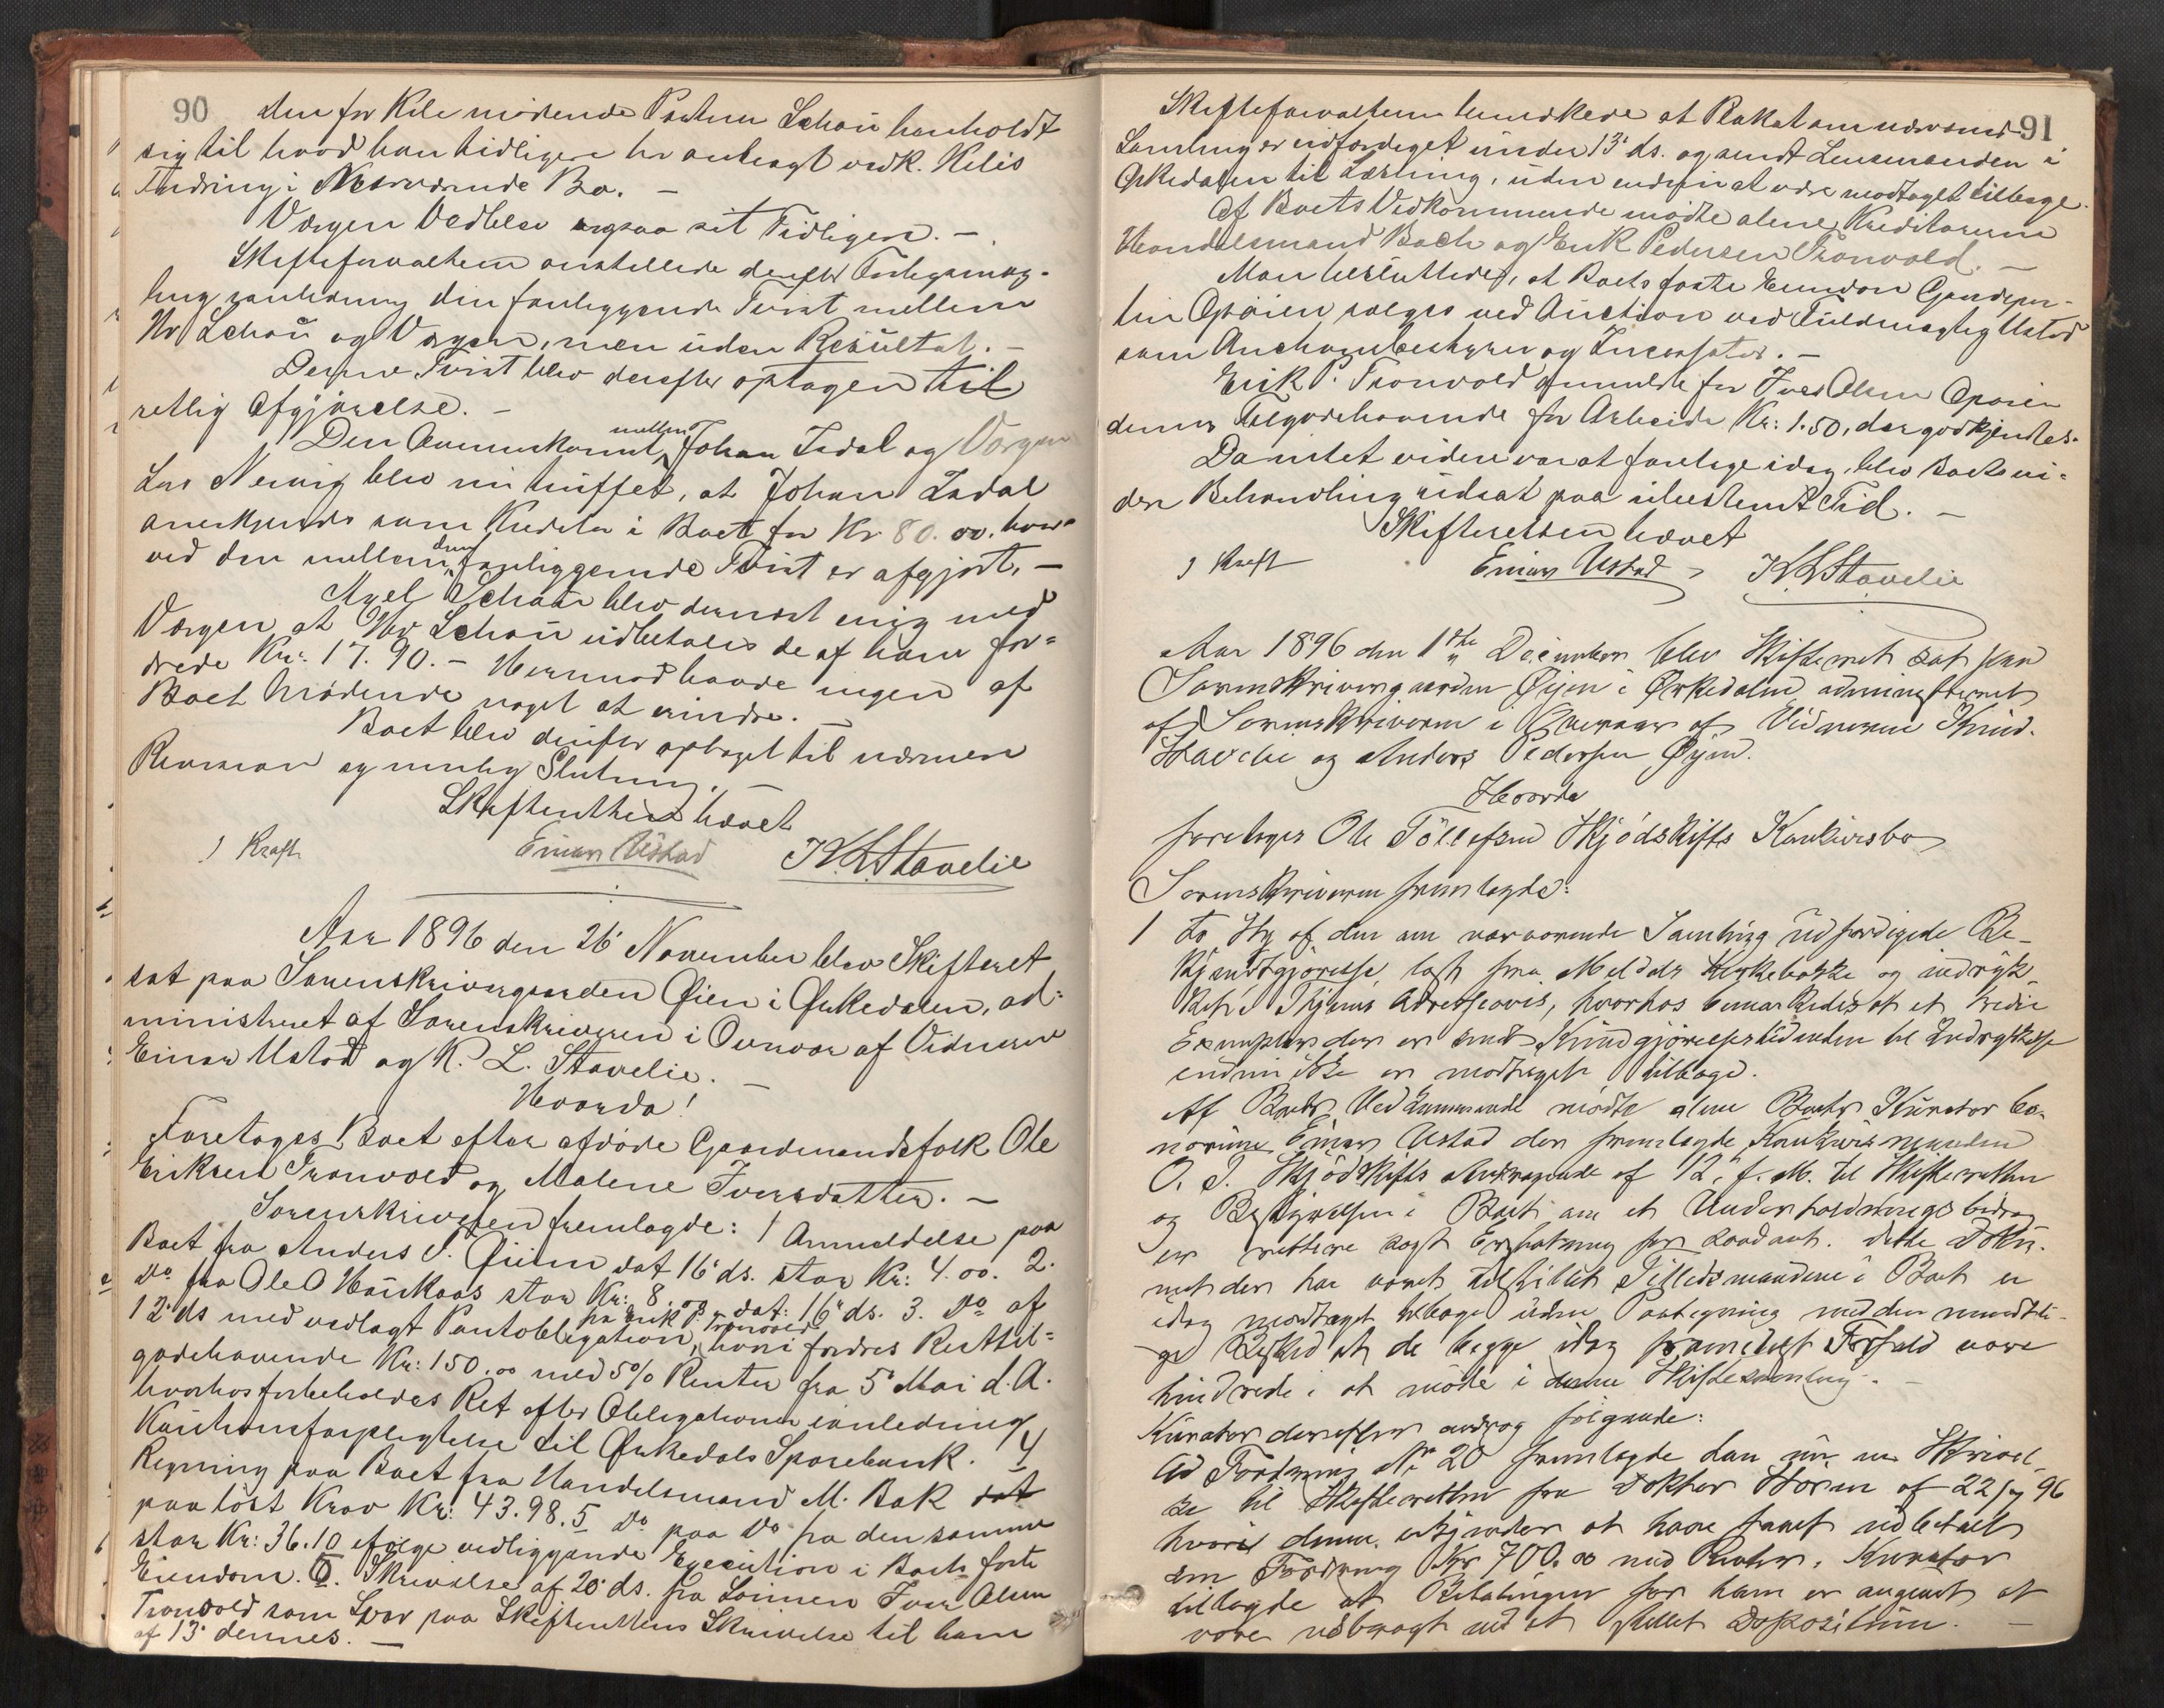 90
den for Kile mødende Partner Schau henholdt
sig til hvad han tidligere har anbragt vedk. Kiles
Fordring i Nærværende Bo. –
Værgen Vedblev ogsaa sit Tidligere. –
Skifteforvalteren anstillede derefter Forligsmæg-
ling i anledning den foreliggende Tvist mellem
Hr Schau og Værgen, men uden Resultat. –
Denne Tvist blev derefter optagen til
retlig Afgjørelse. –
Den Overenskomst mellem Johan Indal og Værgen
Lars blev nu truffet, at Johan Indal
anerkjendes som Kreditor i Boet for Kr 80.00. hvor-
ved den mellem dem foreliggende Tvist er afgjort. –
Axel Schau blev dernæst enig med
Værgen at Hr Schau udbetales de af ham for-
drede Kr: 17.90. – Hermod havde ingen af
Boet Mødende noget at erindre. –
Boet blev derefter optaget til nærmere
Revision og mulig Slutning. –
Skifteretten hævet
J Kraft
Einar Ustad
K L Stavelie
Aar 1896 den 26' November blev Skifteret
sat paa Sorenskrivergaarden Øien i Ørkedalen, ad-
ministreret af Sorenskriveren i Overvær af Vidnerne
Einar Ustad og K. L. Stavelie. –
Hvorda!
Foretoges Boet efter afdøde Gaardmandsfolk Ole
Eriksen Tronvold og Malene Iversdatter. –
Sorenskriveren fremlagde: 1 Anmeldelse paa
Boet fra Anders P. Øien dat 16' ds. stor Kr: 4.00. 2.
Do fra Ole O Haukaas stor Kr: 8.00 dat: 16' ds. 3. Do af
12' ds med vedlagt Pantobligation, fra Erik P. Tronvold hvori fordres Resttil-
godehavende Kr: 150.00 med 5% Renter fra 5' Mai d. A.
hvorhos forbeholdes Ret efter Obligationen i anledning
Kautionsforpligtelse til Ørkedals Sparebank. 4
Regning paa Boet fra Handelsmand M. Bak dat
paa løst Krav Kr: 43.98. 5 Do paa Do fra den samme
stor Kr: 36.10 ifølge vedliggende Execution i Boets faste
Eiendom. 6. Skrivelse af 20' ds. fra Sønnen Iver Olsen
Tronvold som Svar paa Skifterettens Skrivelse til ham
af 13' dennes. –
91
Skifteforvalteren bemærkede at Plakat om nærværende
Samling er udfærdiget under 13' ds. og sendt Lensmanden i
Ørkedalen til Læsning, uden endnu at være modtaget tilbage.
Af Boets Vedkommende mødte alene Kreditorerne
Handelsmand Bach og Erik Pedersen Tronvold. –
Man besluttede, at Boets faste Eiendom
sælges ved Auction ved Fuldmægtig Ustad
som Auctionsbestyrer og Incassator. –
Erik P. Tronvold anmeldte for Iver Olsen
dennes Tilgodehavende for Arbeide Kr: 1.50, der godkjendtes.
Da intet videre var at foretage idag, blev Boets vi-
dere Behandling udsat paa ubestemt Tid. –
Skifteretten hævet
J Kraft
Einar Ustad
K L Stavelie
Aar 1896 den 1ste December blev Skifteret sat paa
Sorenskrivergaarden Øyen i Ørkedalen administreret
af Sorenskriveren i Overvær af Vidnerne Knud
Stavelie og Anders Pedersen Øyen.
Hvorda
foretoges Ole Tollefsen Skjødskifts Konkursbo
Sorenskriveren fremlagde:
1 to Ex af den om nærværende Samling udfærdigede Be-
kjendtgjørelse, læst fra Meldals Kirkebakke og indryk-
ket i Thjems Adresseavis, hvorhos bemærkedes at et tredie
Exemplar der er sendt Kundgjørelsestidenden til Indrykkelse
endnu ikke er modtaget tilbage.
Af Boets Vedkommende mødte alene Boets Kurator
Einar Ustad der fremlagde Konkursmanden
O. T. Skjødskifts Andragende af 12' f. M. til Skifteretten
og Bestyrelsen i Boet om et Underholdningsbidrag
er rettere sagt Erstatning for saadant. Dette Doku-
ment der har været tilstillet Tillidsmændene i Boet er
idag modtaget tilbage uden Paategning med den mundtli-
ge Besked at de begge idag formedelst Forfald vare
hindrede i at møde i denne Skiftesamling. –
Kurator derefter androg følgende:
Ad Fordring No 20 fremlagde han nu en Skrivel-
se til Skifteretten fra Doktor af 22/7 96
hvori denne erkjender at have faaet udbetalt
sin Fordring Kr 700.00 med Renter. Kurator
tillagde at Betalingen for ham er angivet at
være udbragt ved et stillet Depositum. –